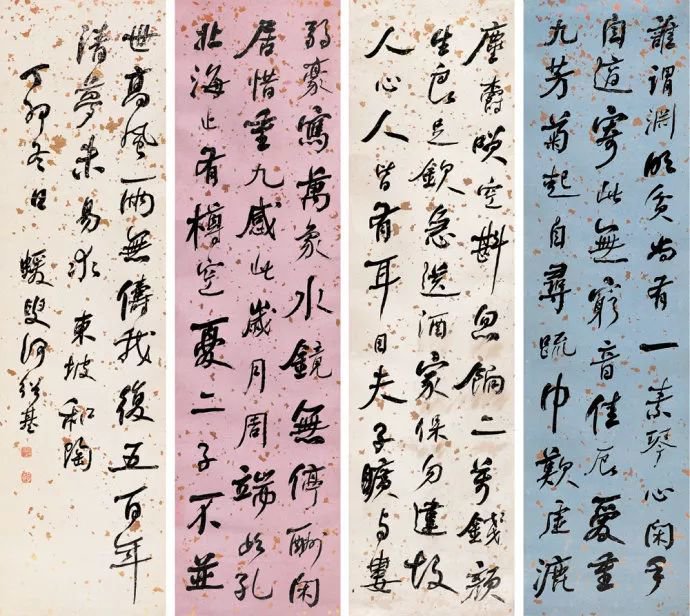 誰謂淵明貧尚有一素琴心閑手
自適寄此無窮音佳辰愛重
九芳菊起自尋疏巾歎虛漉
塵爵咲空斟忽餉二萬錢顏
生良足欽急送酒家保勿違故
人心人皆有耳目夫子曠与婁
弱豪寫萬象水鏡無停酬閑
居惜重九感此歲月周端如孔
北海止有樽空憂二子不並
世高風兩無儔我後五百年
清夢未易求 東坡和陶
丁卯冬日 蝯叟何紹基